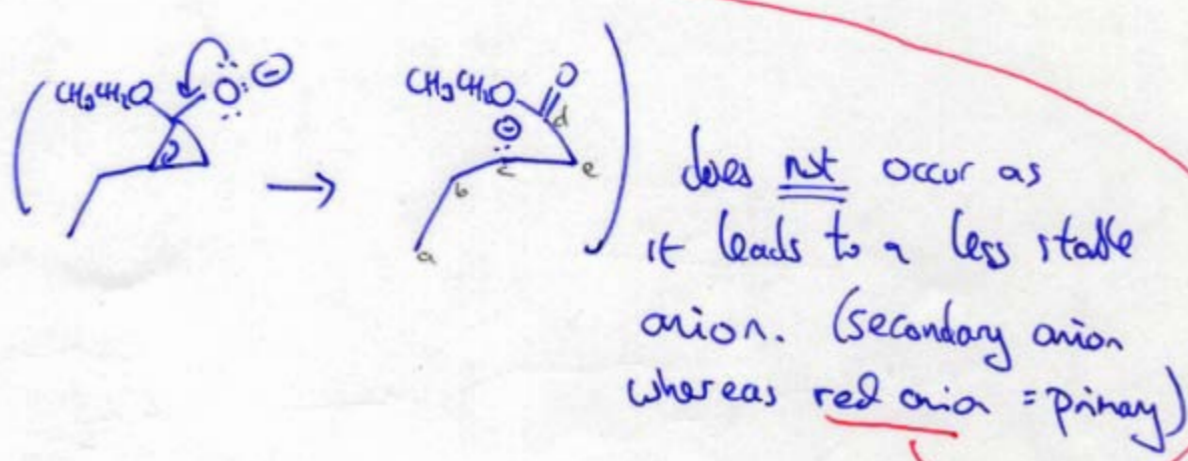 CH₃CH₂O :Ö: ⊖
CH₃CH₂O O
⊖
a b c d e
does not occur as
it leads to a less stable
anion. (secondary anion
whereas red anion = primary)